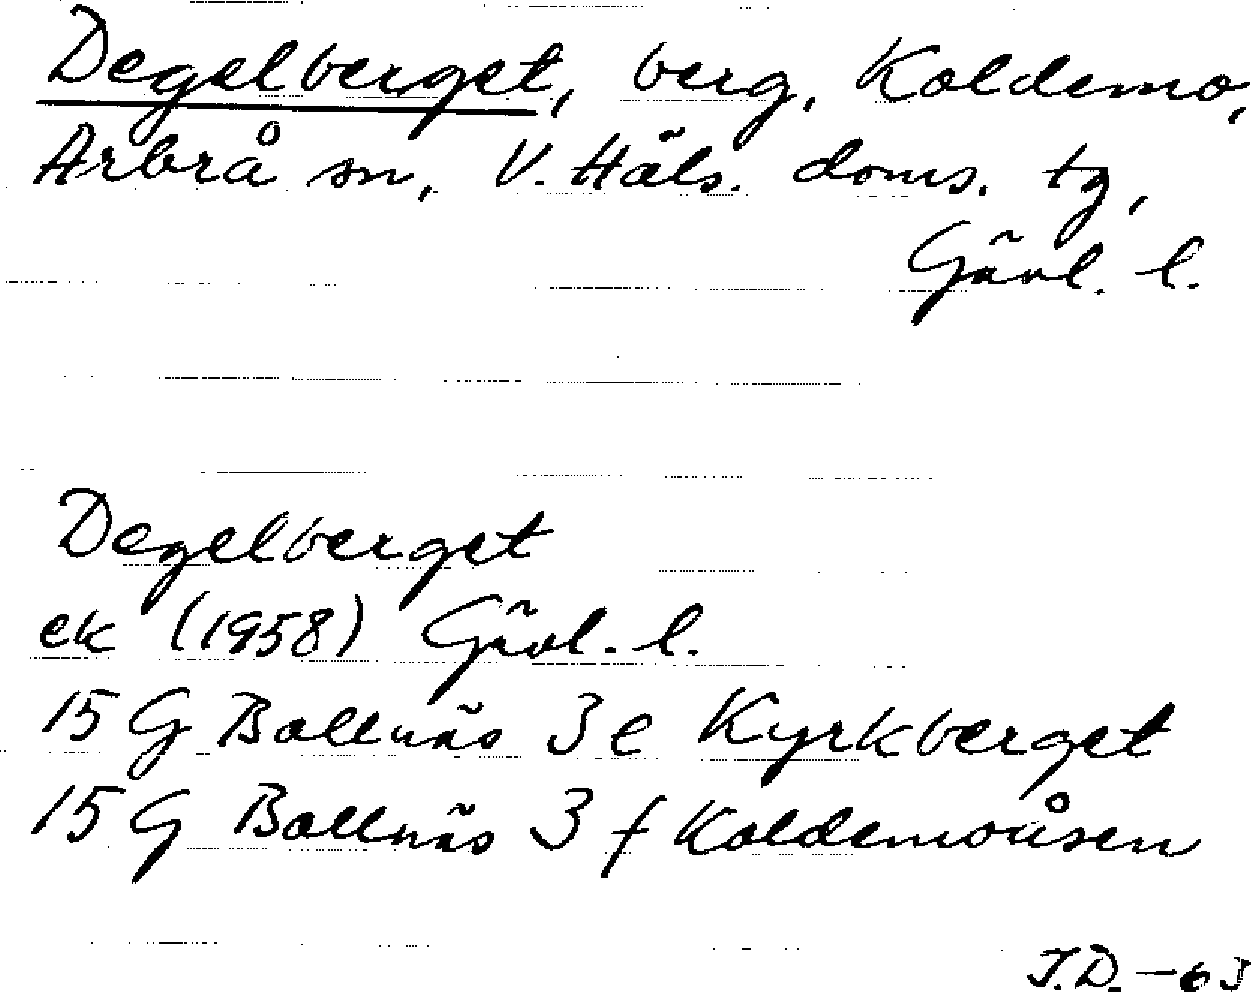 Degelberget, berg, Koldemo,
Arbrå sn, V. Häls. doms. tg,
Gävl. l.
Degelberget
ek (1958) Gävl. l.
15 G Bollnäs 3 e Kyrkberget
15 G Bollnäs 3 f Koldemoåsen
J.D. - 63